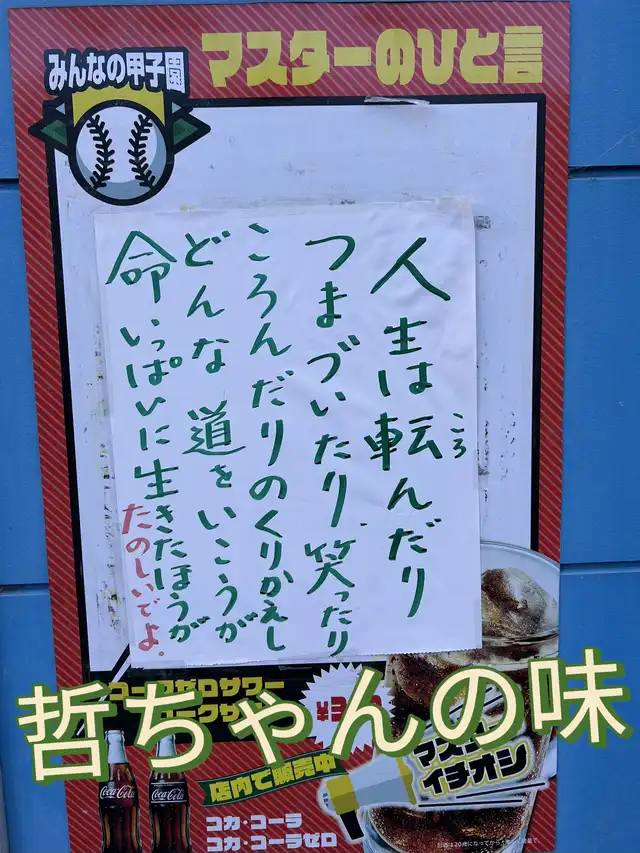 みんなの甲子園
マスターのひと言
人生は転んだり
ころ
つまづいたり、笑ったり
ころんだりのくりかえし
どんな道をいこうが
命いっぱいに生きたほうが
たのしいでよ、
哲ちゃんの味
店内で販売中
コカ・コーラ
コカ・コーラゼロ
マスター
イチオシ
Coca-Cola
Coca-Cola